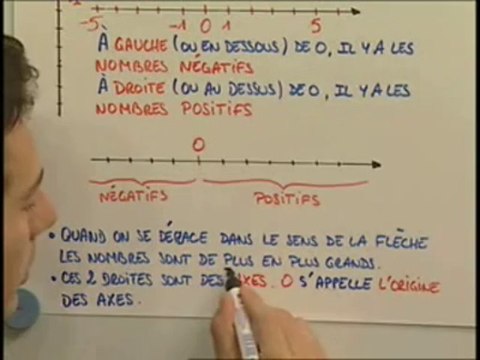 -1
-5 -1 0 1 5
À GAUCHE (OU EN DESSOUS) DE 0, IL Y A LES
NOMBRES NÉGATIFS
À DROITE (OU AU DESSUS) DE 0, IL Y A LES
NOMBRES POSITIFS
0
NÉGATIFS POSITIFS
• QUAND ON SE DÉPLACE DANS LE SENS DE LA FLÈCHE
LES NOMBRES SONT DE PLUS EN PLUS GRANDS.
• CES 2 DROITES SONT DES AXES. 0 S'APPELLE L'ORIGINE
DES AXES.